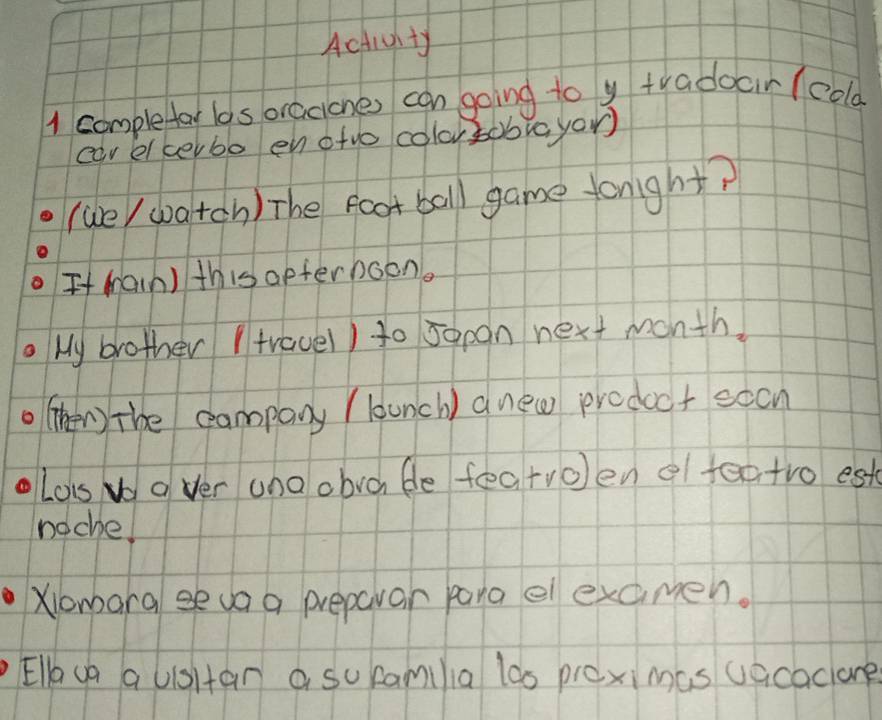 Activity
1 completar las oraciones con going to y tradocir (colo
car el verbo en otro color sobrayar)
(we/watch) The foot ball game tonight?
It (rain) this afternoon.
My brother (travel) to Japan next month.
(Then) The company (launch) a new prodoct soon
Lois va a ver una obra (de featro) en el teatro esta
noche.
Xiomara se va a preparar para el examen.
Ella va a visitar a su familia las proximas vacacione